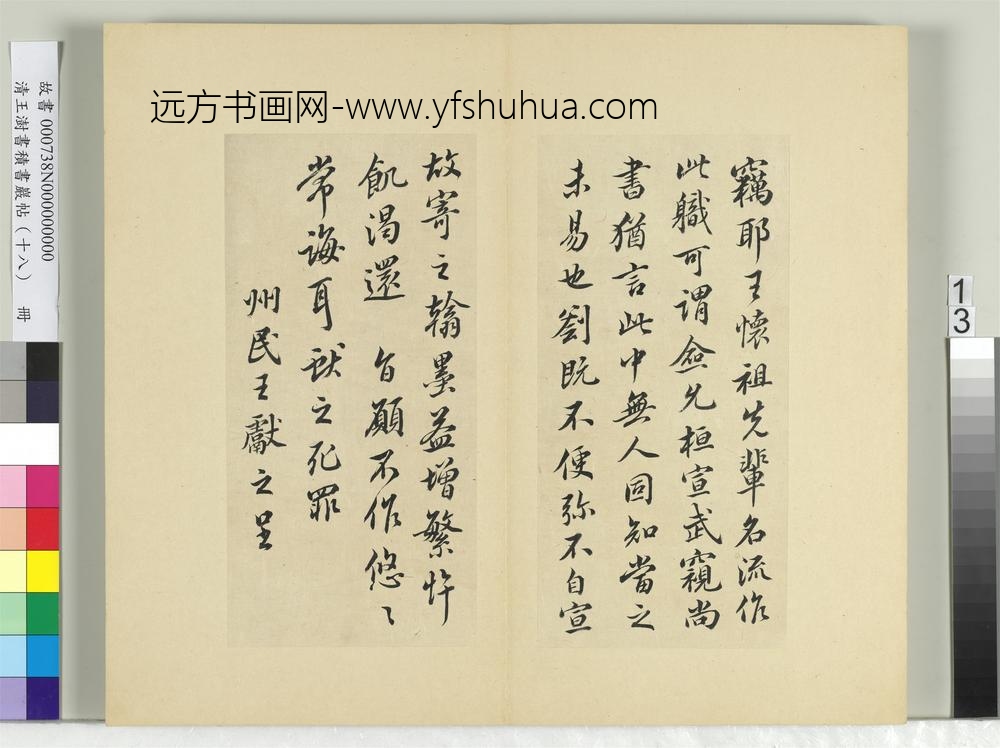 远方书画网-www.yfshuhua.com
故書 000738N000000000
清王澍書積書巖帖（十八） 冊
竊耶王懷祖先輩名流作
此職可謂僉允桓宣武窺尚
書猶言此中無人固知當之
未易也劉既不便弥不自宣
故寄之翰墨益增繁忤
飢渴還 旨願不作悠〻
常誨耳獻之死罪
州民王獻之呈
1
3